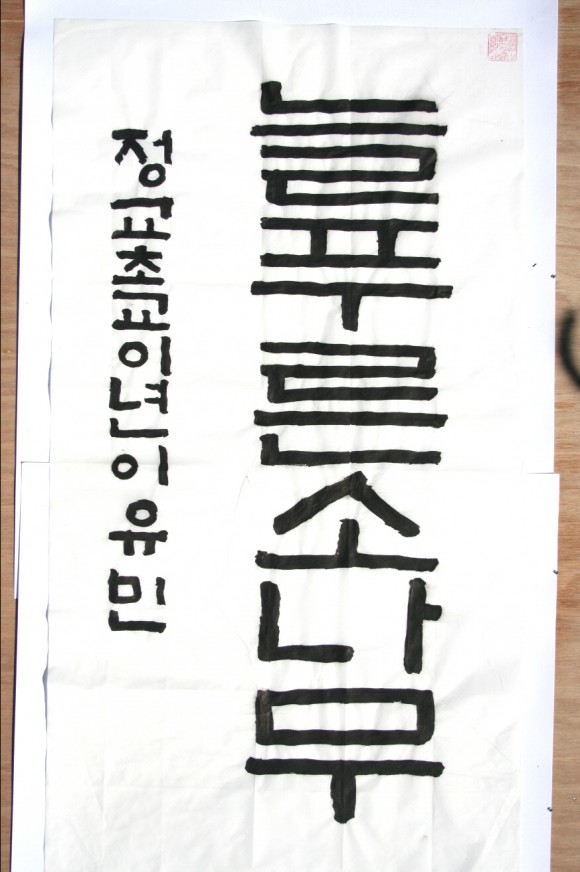 늘푸른소나무
정교초교이년이유민